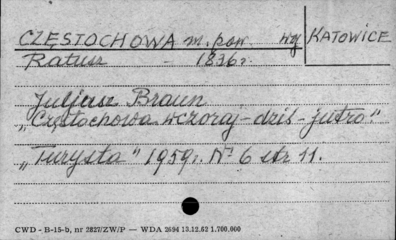 CZĘSTOCHOWA m. pow. wj KATOWICE
Ratusz - 1836 r.
Juljusz Braun
„Częstochowa wczoraj - dziś - jutro."
„Turysta" 1959 r. Nr 6 str 11.
CWD - B-15-b, nr 2827/ZW/P — WDA 2694 13.12.62 1.700.000